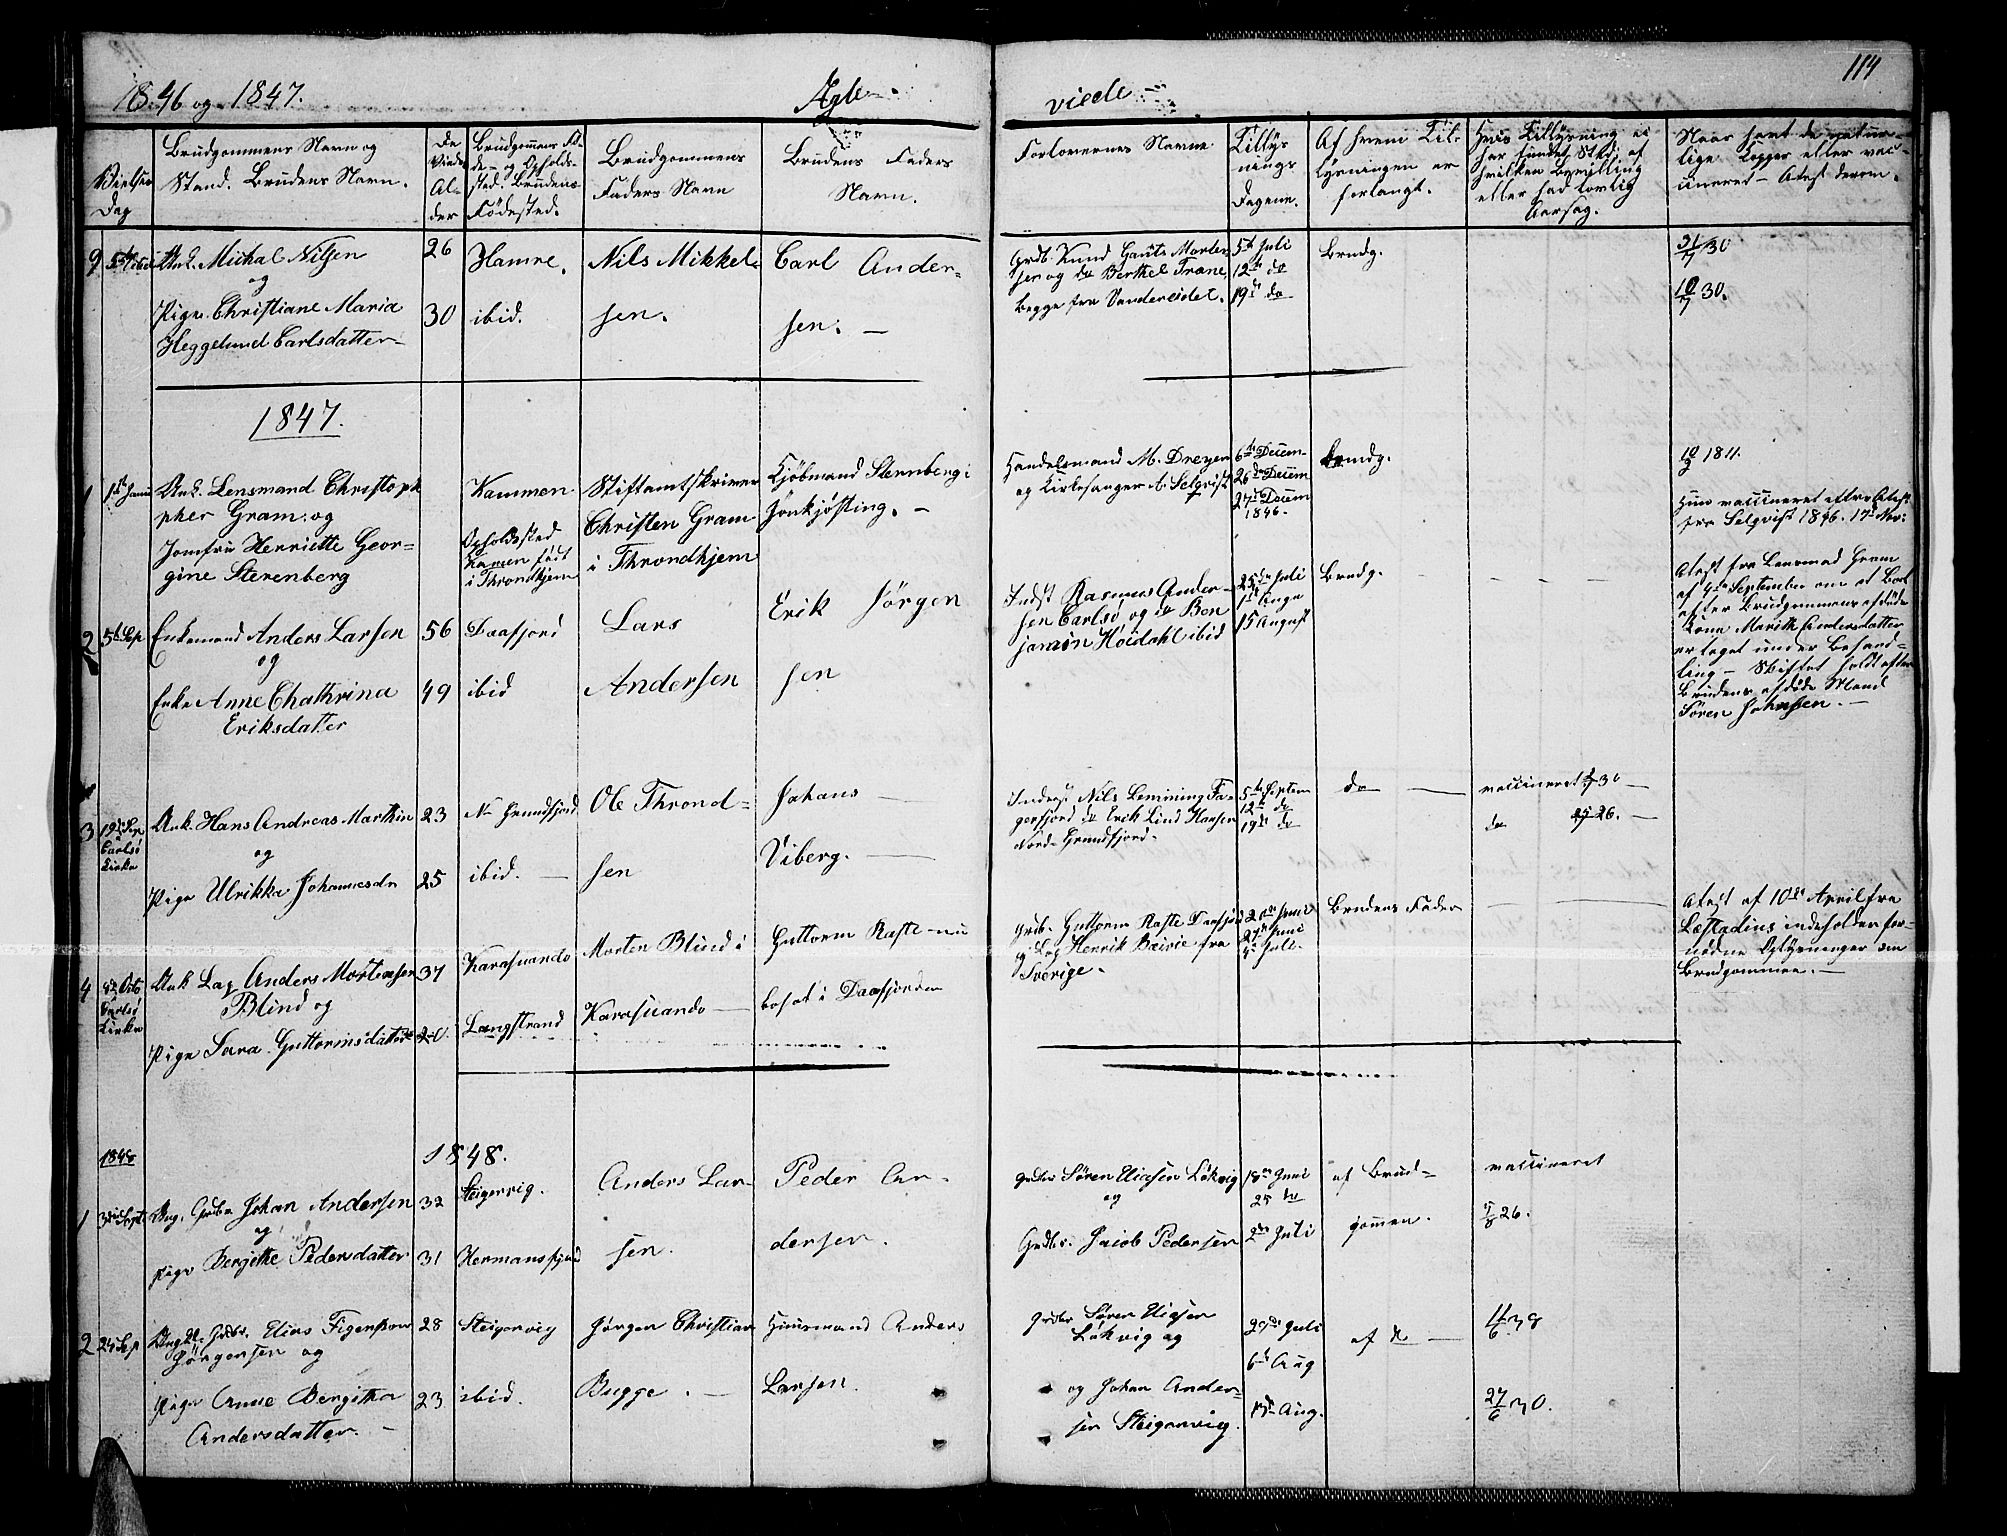 1846 og 1847.
Ægte-
viede
114
Vielses Dag
Brudgommens Navn og
Stand. Brudens Navn.
De
Viede
Al-
der
Brudgommens Fø-
de- og Opholds-
sted. Brudens
Fødested.
Brudgommens
Faders Navn
Brudens Faders
Navn.
Forlovernes Navne
Tillys
nings
Dagene.
Af hvem Til-
lysningen er
forlangt.
Hvis Tillysning ei
har fundet Sted, af
hvilken Bevilling
eller fad lovlig
Aarsag.
Naar havt de natur-
lige Kopper eller vac-
cineret - Atest derom.
9
Michal Nilsen
og
Pige Christiane Maria
Heggelund Carlsdatter
26
30
Hamre.
ibid.
Nils Mikkel-
sen.
Carl Ander-
sen. -
Grdb. Knud Gauts Morten
sen og do Berthel Trane
begge fra Vandereidet.
5te Juli
12te do
19de do
Brudg.
31/7 30
10/7 30.
1847.
1
Unk. Lensmand Christoph
pher Gram. og
Jomfru Henriette Geor-
gine Sterenberg
Kammen
Opholdssted
Kamen født
i Throndhjem
Stiftamtskriver
Christen Gram
i Throndhjem
Kjøbmand Sternberg i
Jonkjøsting. -
Handelsmand M. Dreyer
og Kirkesanger A. Selqvist
6te Decem-
26de Decem
27de Decem
1846.
Brudg.
1811.
Hun vaccineret efter Atest
fra Selqvist 1846. 17de Nov:
2
5te Sep
Enkemand Anders Larsen
og
Enke Anne Chathrina
Eriksdatter
56
49
Daafjord
ibid
Lars
Andersen
Erik Jørgen
sen
Indst Rasmus Ander-
sen Carlsø, og do Ben
jamin Høidahl ibid
25de Juli
1ste Augu
15 August
Brudg.
Atest fra Lensmad Gram
af 4de September om at Boet
efter Brudgommens afdøde
Kone Marith Andersdatter
er taget under Behand-
ling - Skiftet holdt efter
Brudens afdøde Mand
Søren Johnsen. -
3
19de Sep
Carlsø
Kirke
Unk. Hans Andreas Marthin
og
Pige Ulrikka Johannesdr
23
25
N. Grundfjord
ibid.
Ole Thrond-
sen
Johans
Viberg.
Inderst Nils Lemming Fa-
gerfjord do Erik Lind Hansen
Nord- Grundfjord.
5te Septem
12te do
19de do
do
vaccineret 30
do 26. -
4
Carlsø
Kirke
Unk Lap Anders Mortensen
Blind og
Pige Sara Guttormsdatter
37
20.
Karasuando
Langstrand
Morten Blind i
Karasuando
Guttorm Raste nu
bosat i Daafjorden
Grdb. Guttorm Raste Daafjord
og Lap Henrik Bæivie fra
Sverige.
20de Juni
27de Juni
4de Juli.
Brudens Fader
Atest af 10de April fra
Læstadius indeholder for-
nødne Oplysninger om
Brudgommen. -
1848
1848.
1
3die Septr
Ung. Grdbr Johan Andersen
og
Pige Bergithe Pedersdatter
32
31
Steigervig.
Hermansfjord
Anders Lar-
sen.
Peder An-
dersen.
Grdbr Søren Eliasen Løkvig
og
Grdbr. Jacob Pedersen
18de Juni
25 do
2den Juli
af Brud-
gommen.
vaccineret
5/8 26.
2
24 Sep
Elias Figenskou
Jørgensen og
Pige Anne Bergitha
Andersdatter. -
28
23
Steigervig
ibid.
Jørgen Christian
Bugge. -
Huusmand Anders
Larsen.
Grdbr Søren Eliasen
Løkvig og
og Johan Ander-
sen Steigervig.
29de Juli
6te Aug
13de Aug.
af do
11/6 38
27/6 30.